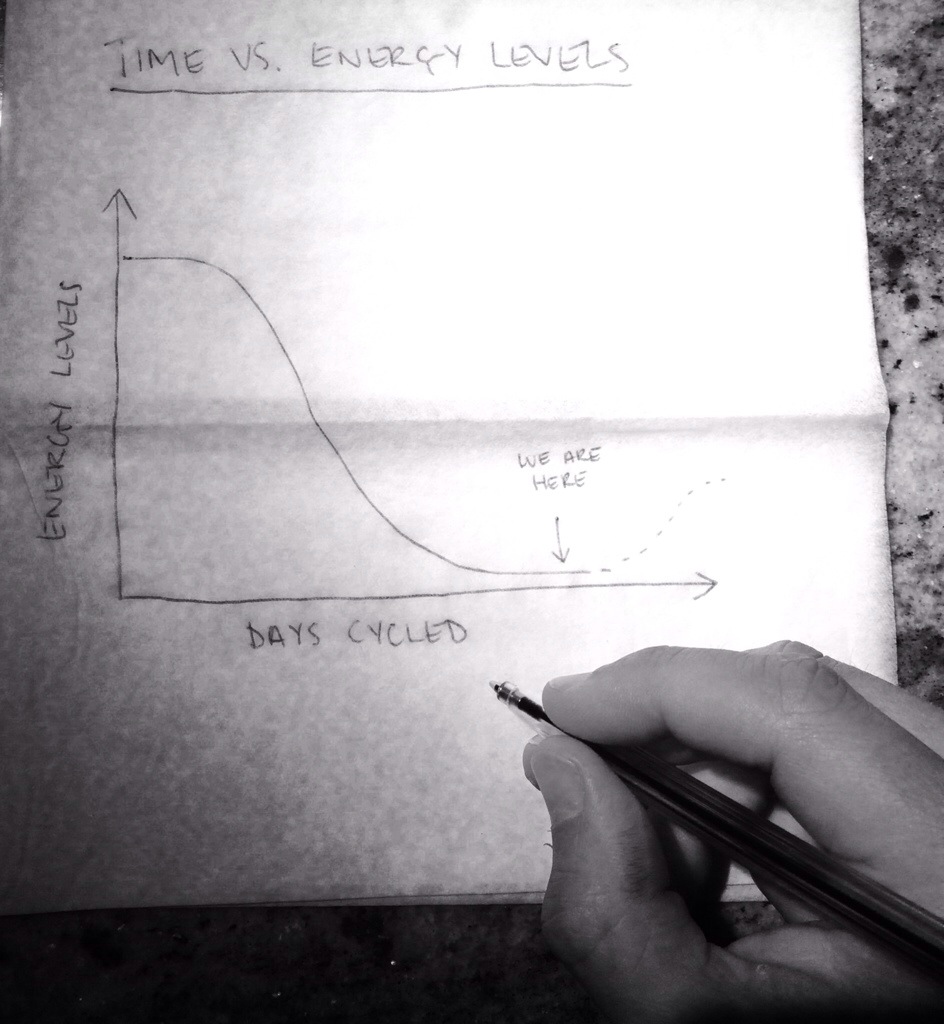 TIME VS. ENERGY LEVELS
ENERGY LEVELS
WE ARE
HERE
DAYS CYCLED